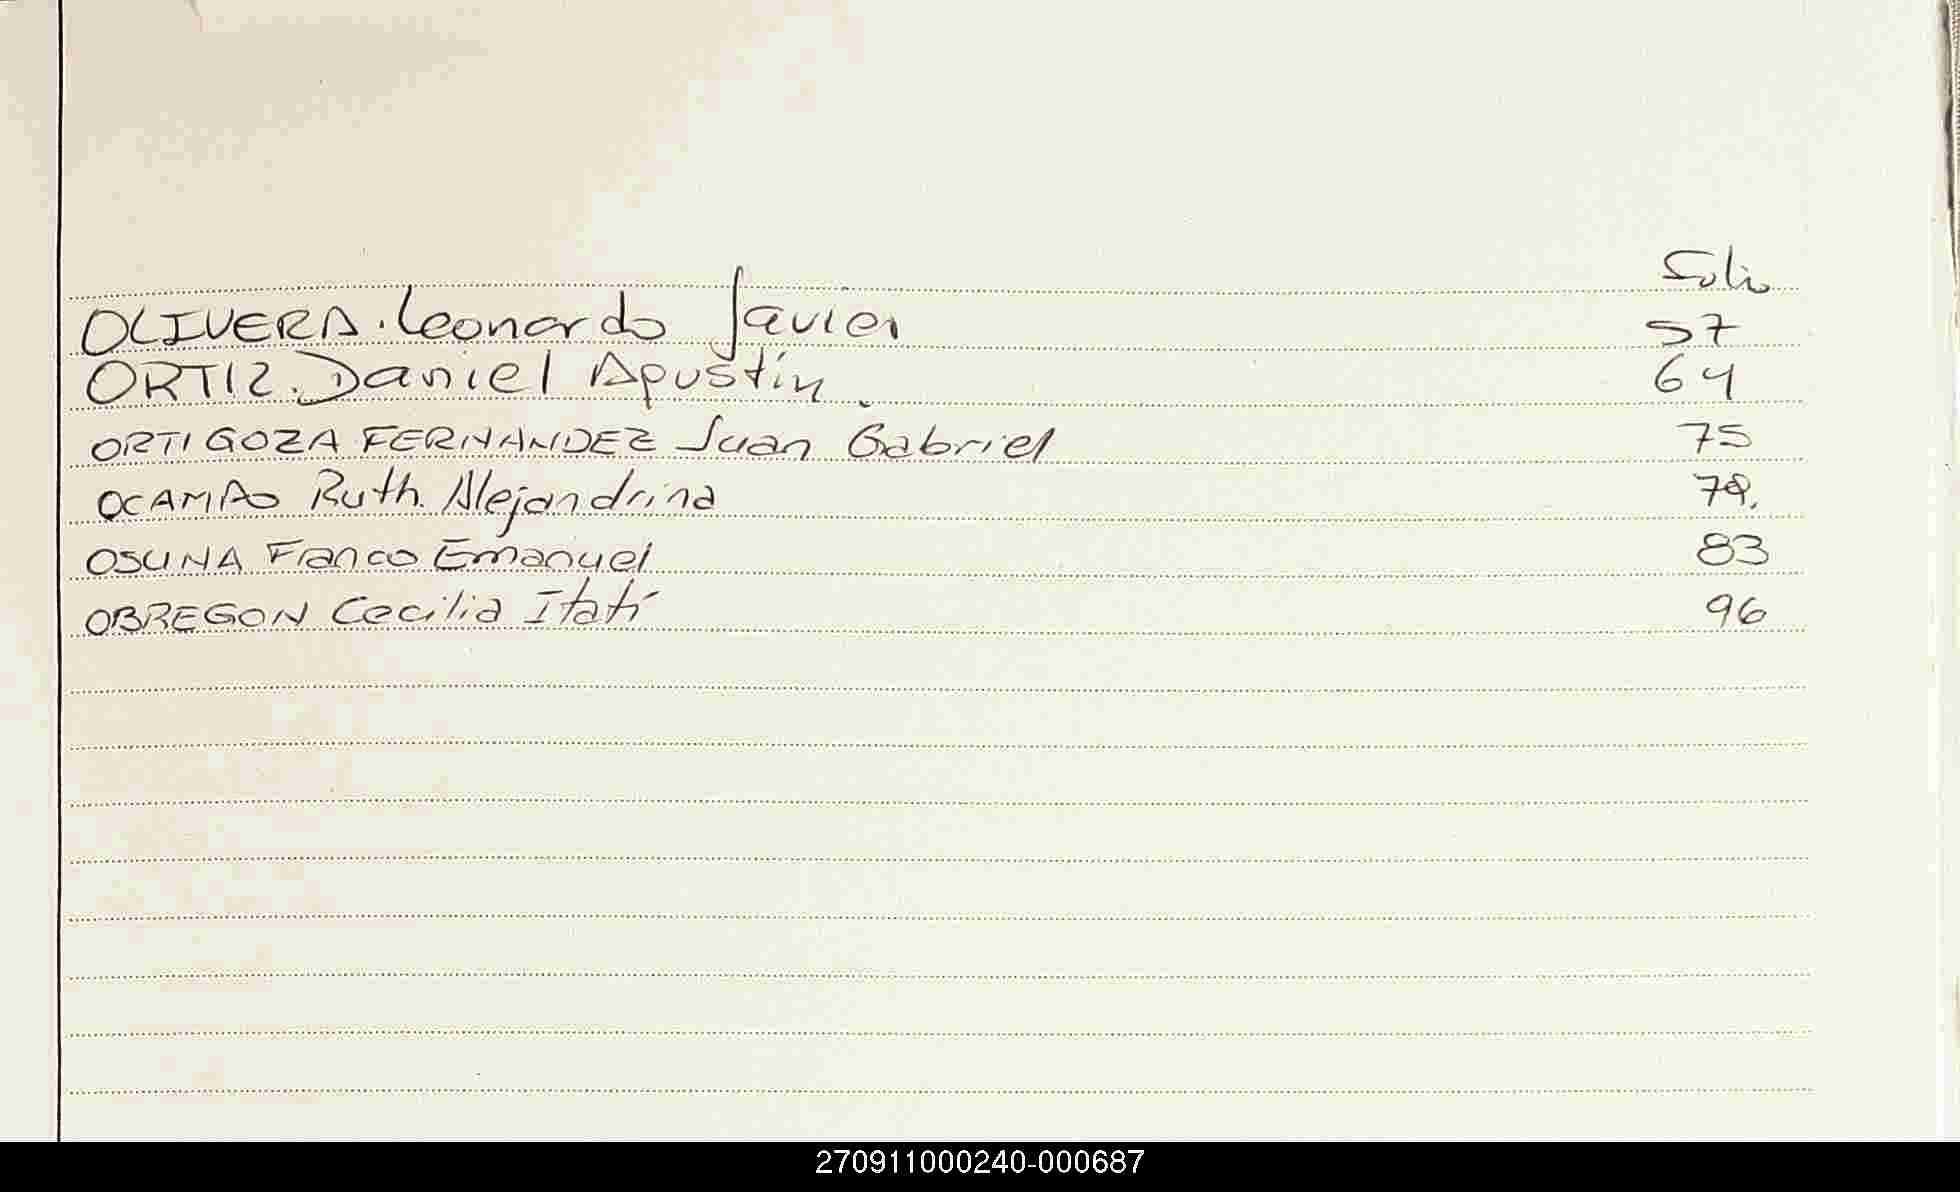 Folio
OLIVERA. Leonardo Javier 57
ORTIZ. Daniel Agustín. 64
ORTIGOZA FERNANDEZ Juan Gabriel 75
OCAMPO Ruth. Alejandrina
OSUNA Franco Emanuel 83
OBREGON Cecilia Itatí 96
270911000240-000687